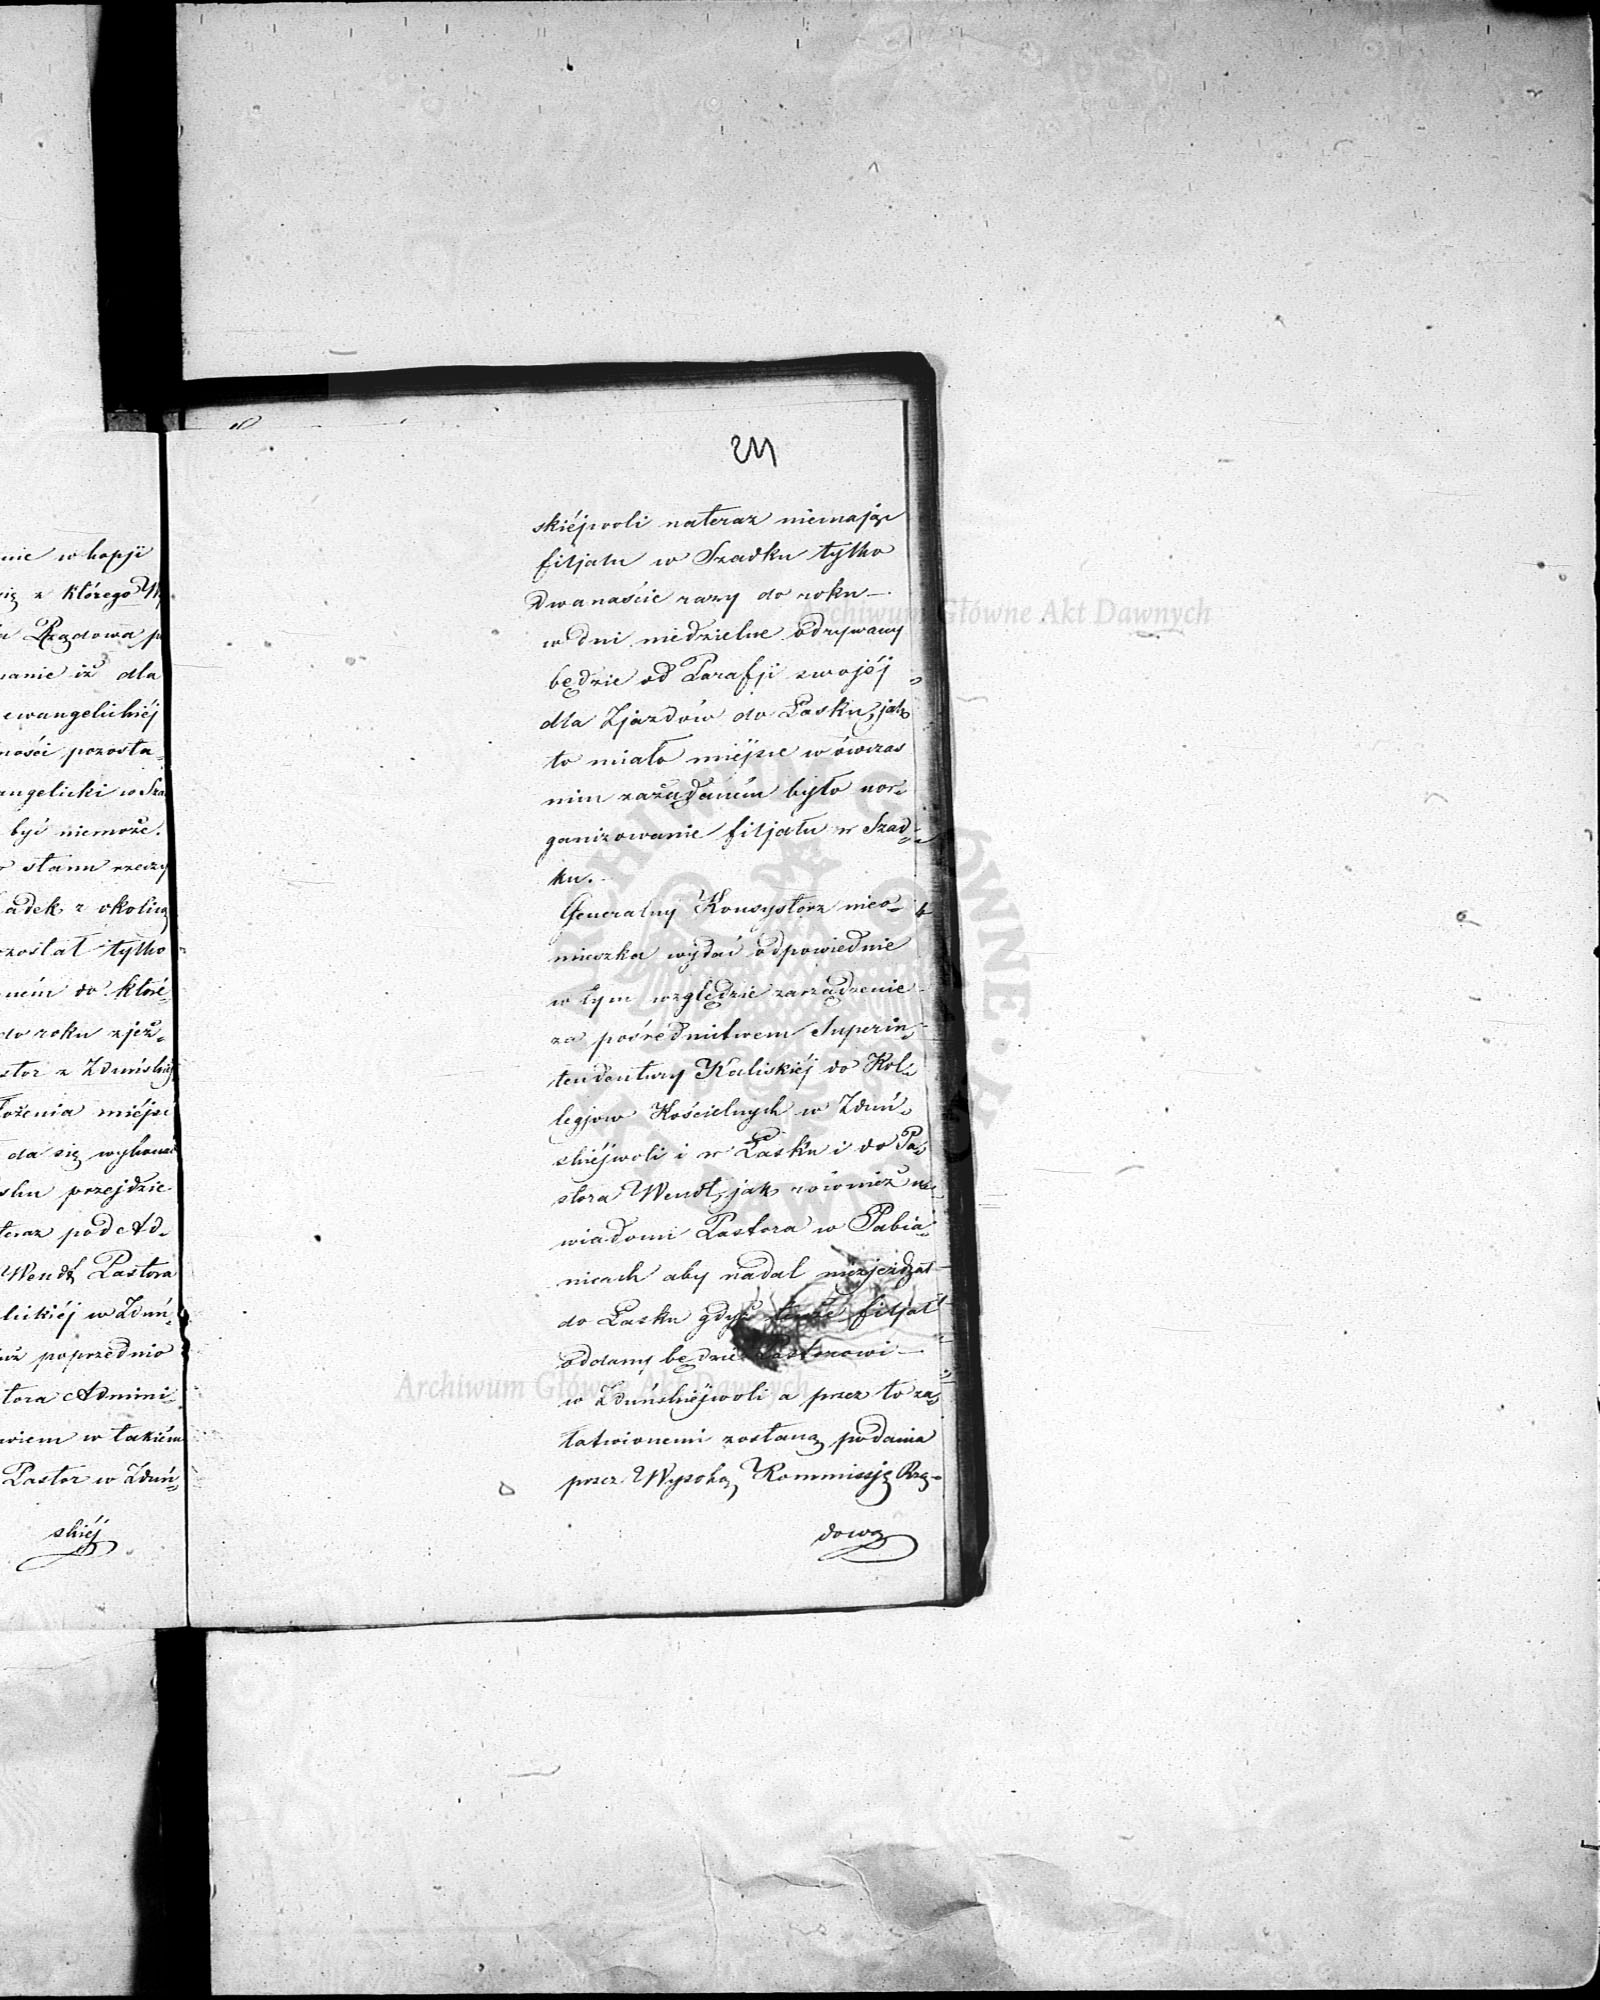 nie w kopji
się z którego W
Rządowa p
nanie iż dla
ewangelickiéj
ności pozosta„
angelicki w Sza
być niemoże.
stanu rzeczy
adek z okolicą
został tylko
nem do któré„
do roku zjeż„
stor z Zduńskiéj
łożenia miéjsc
da się wykonać
sku przejdzie
teraz pod Ad„
Wendt Pastora
lickiéj w Zduń„
już poprzednio
tora Admini„
wiem w takiém
Pastor w Zduń„
skiéj
211
skiéjwoli nateraz niemając
filjału w Szadku tylko
dwanaście razy do roku —
w dni niedzielne odrywany
będzie od Parafji swojéj
dla Zjazdów do Łasku, jak
to miało miéjsce wówczas
nim zażądaném było uor„
ganizowanie filjału w Szad„
ku. —
Generalny Konsystorz nieo„
mieszka wydać odpowiednie
w tym względzie zarządzenie
za pośrednictwem Superin„
tendentury Kaliskiéj do Kol„
legjow Kościelnych w Zduń„
skiéjwoli i w Łasku i do Pa„
stora Wendt, jak również u„
wiadomi Pastora w Pabia„
nicach aby nadal niezjeżdżał
do Łasku gdyż tenże filjał
oddany będzie Pastorowi —
w Zduńskiéjwoli a przez to za„
łatwionemi zostaną podania
przez Wysoką Kommissję Rzą„
dową
Archiwum Główne Akt Dawnych
Archiwum Główne Akt Dawnych